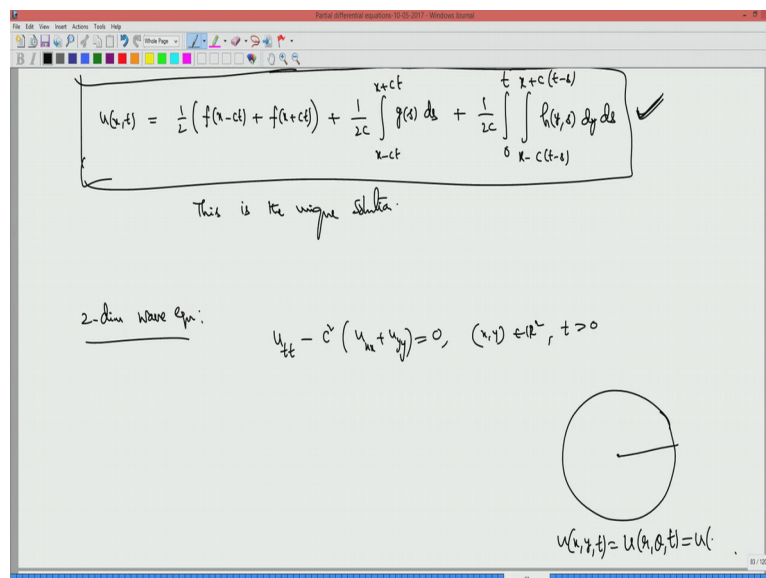 Partial differential equations-10-05-2017 - Windows Journal
File Edit View Insert Actions Tools Help
Whole Page
B I
u(x,t) = 1/2 ( f(x-ct) + f(x+ct) ) + 1/2c ∫_{x-ct}^{x+ct} g(s) ds + 1/2c ∫_0^t ∫_{x-c(t-s)}^{x+c(t-s)} h(y,s) dy ds
This is the unique solution.
2-dim wave eqn:
u_tt - c² ( u_xx + u_yy ) = 0, (x,y) ∈ ℝ², t > 0
u(x,y,t) = u(r,θ,t) = u(
83 / 120